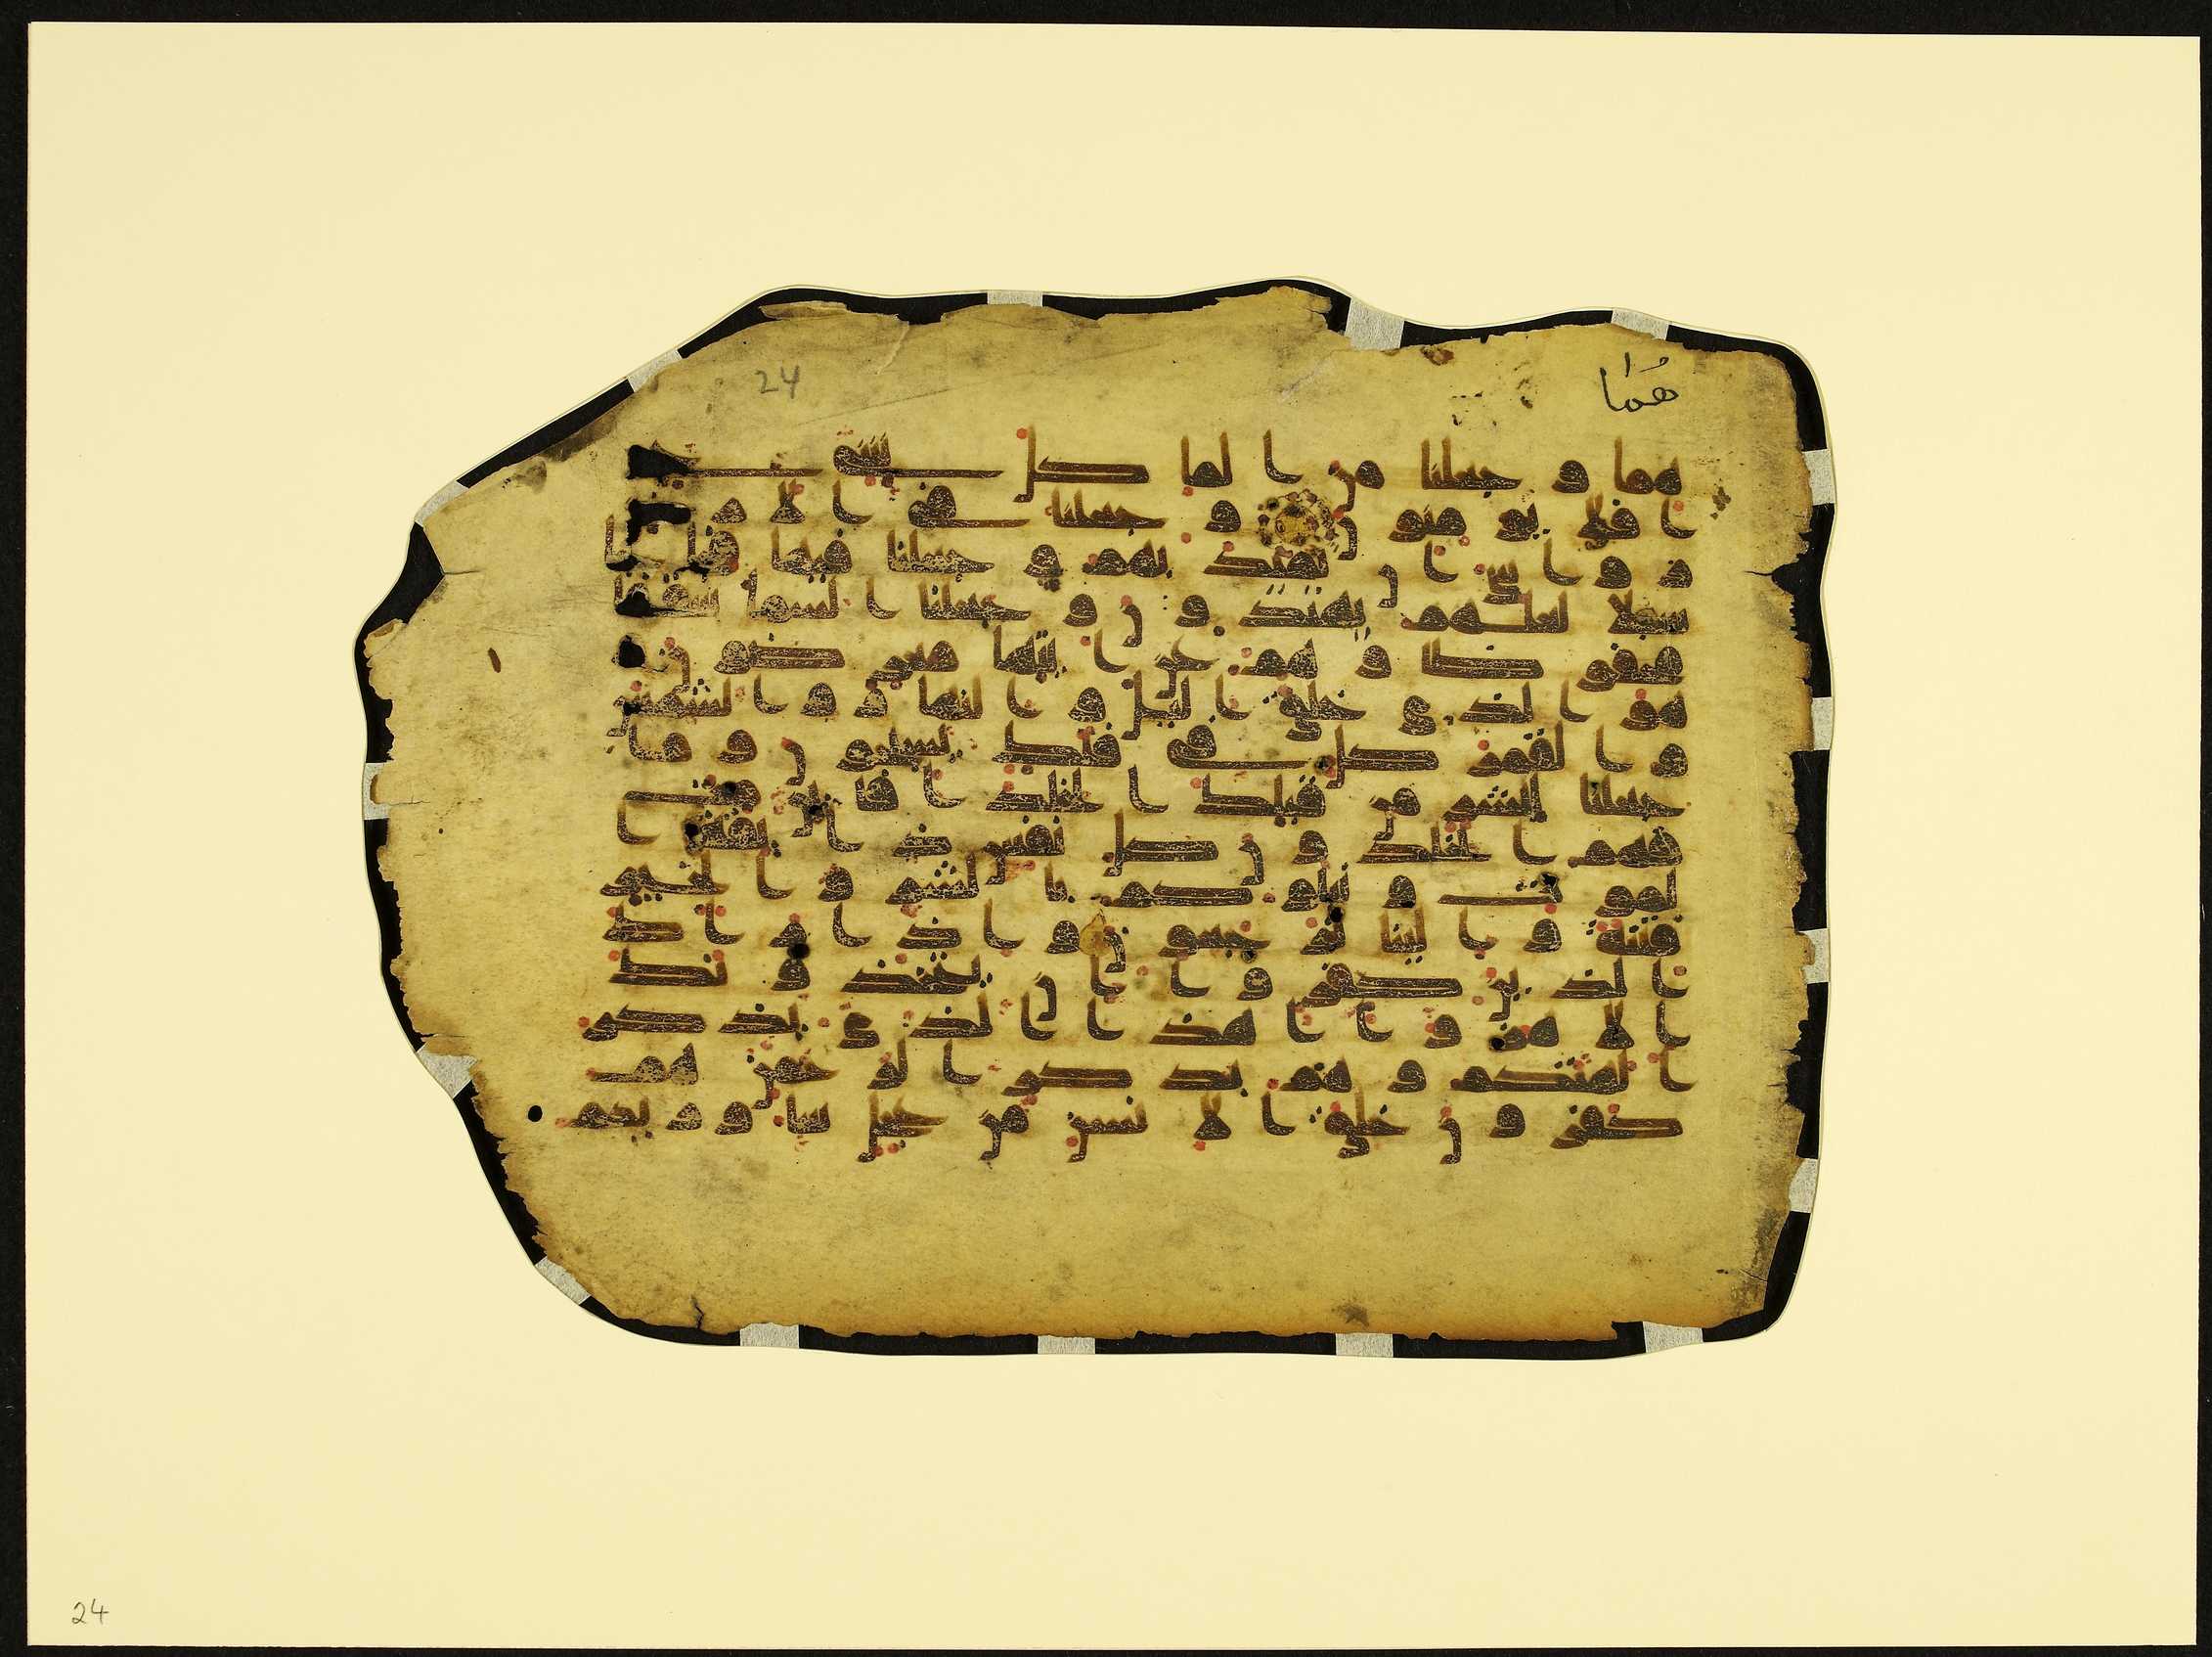 هما
24
هما و جعلنا من الما كل شي حي
افلا يومنون و جعلنا في الار
ض رواسي ان تميد بهم و جعلنا فيها فجاجا
سبلا لعلهم يهتدون و جعلنا السما سقفا
محفوظا و هم عن ايتها معرضون و
هو الذي خلق اليل و النهار و الشمس
و القمر كل في فلك يسبحون و ما
جعلنا لبشر من قبلك الخلد افاين مت
فهم الخلدون كل نفس ذايقة ا
لموت و نبلوكم بالشر و الخير
فتنة و الينا ترجعون و اذا راك
الذين كفروا ان يتخذونك
الا هزوا اهذا الذي يذكر
الهتكم و هم بذكر الرحمن هم
كفرون خلق الانسن من عجل ساوريكم
24